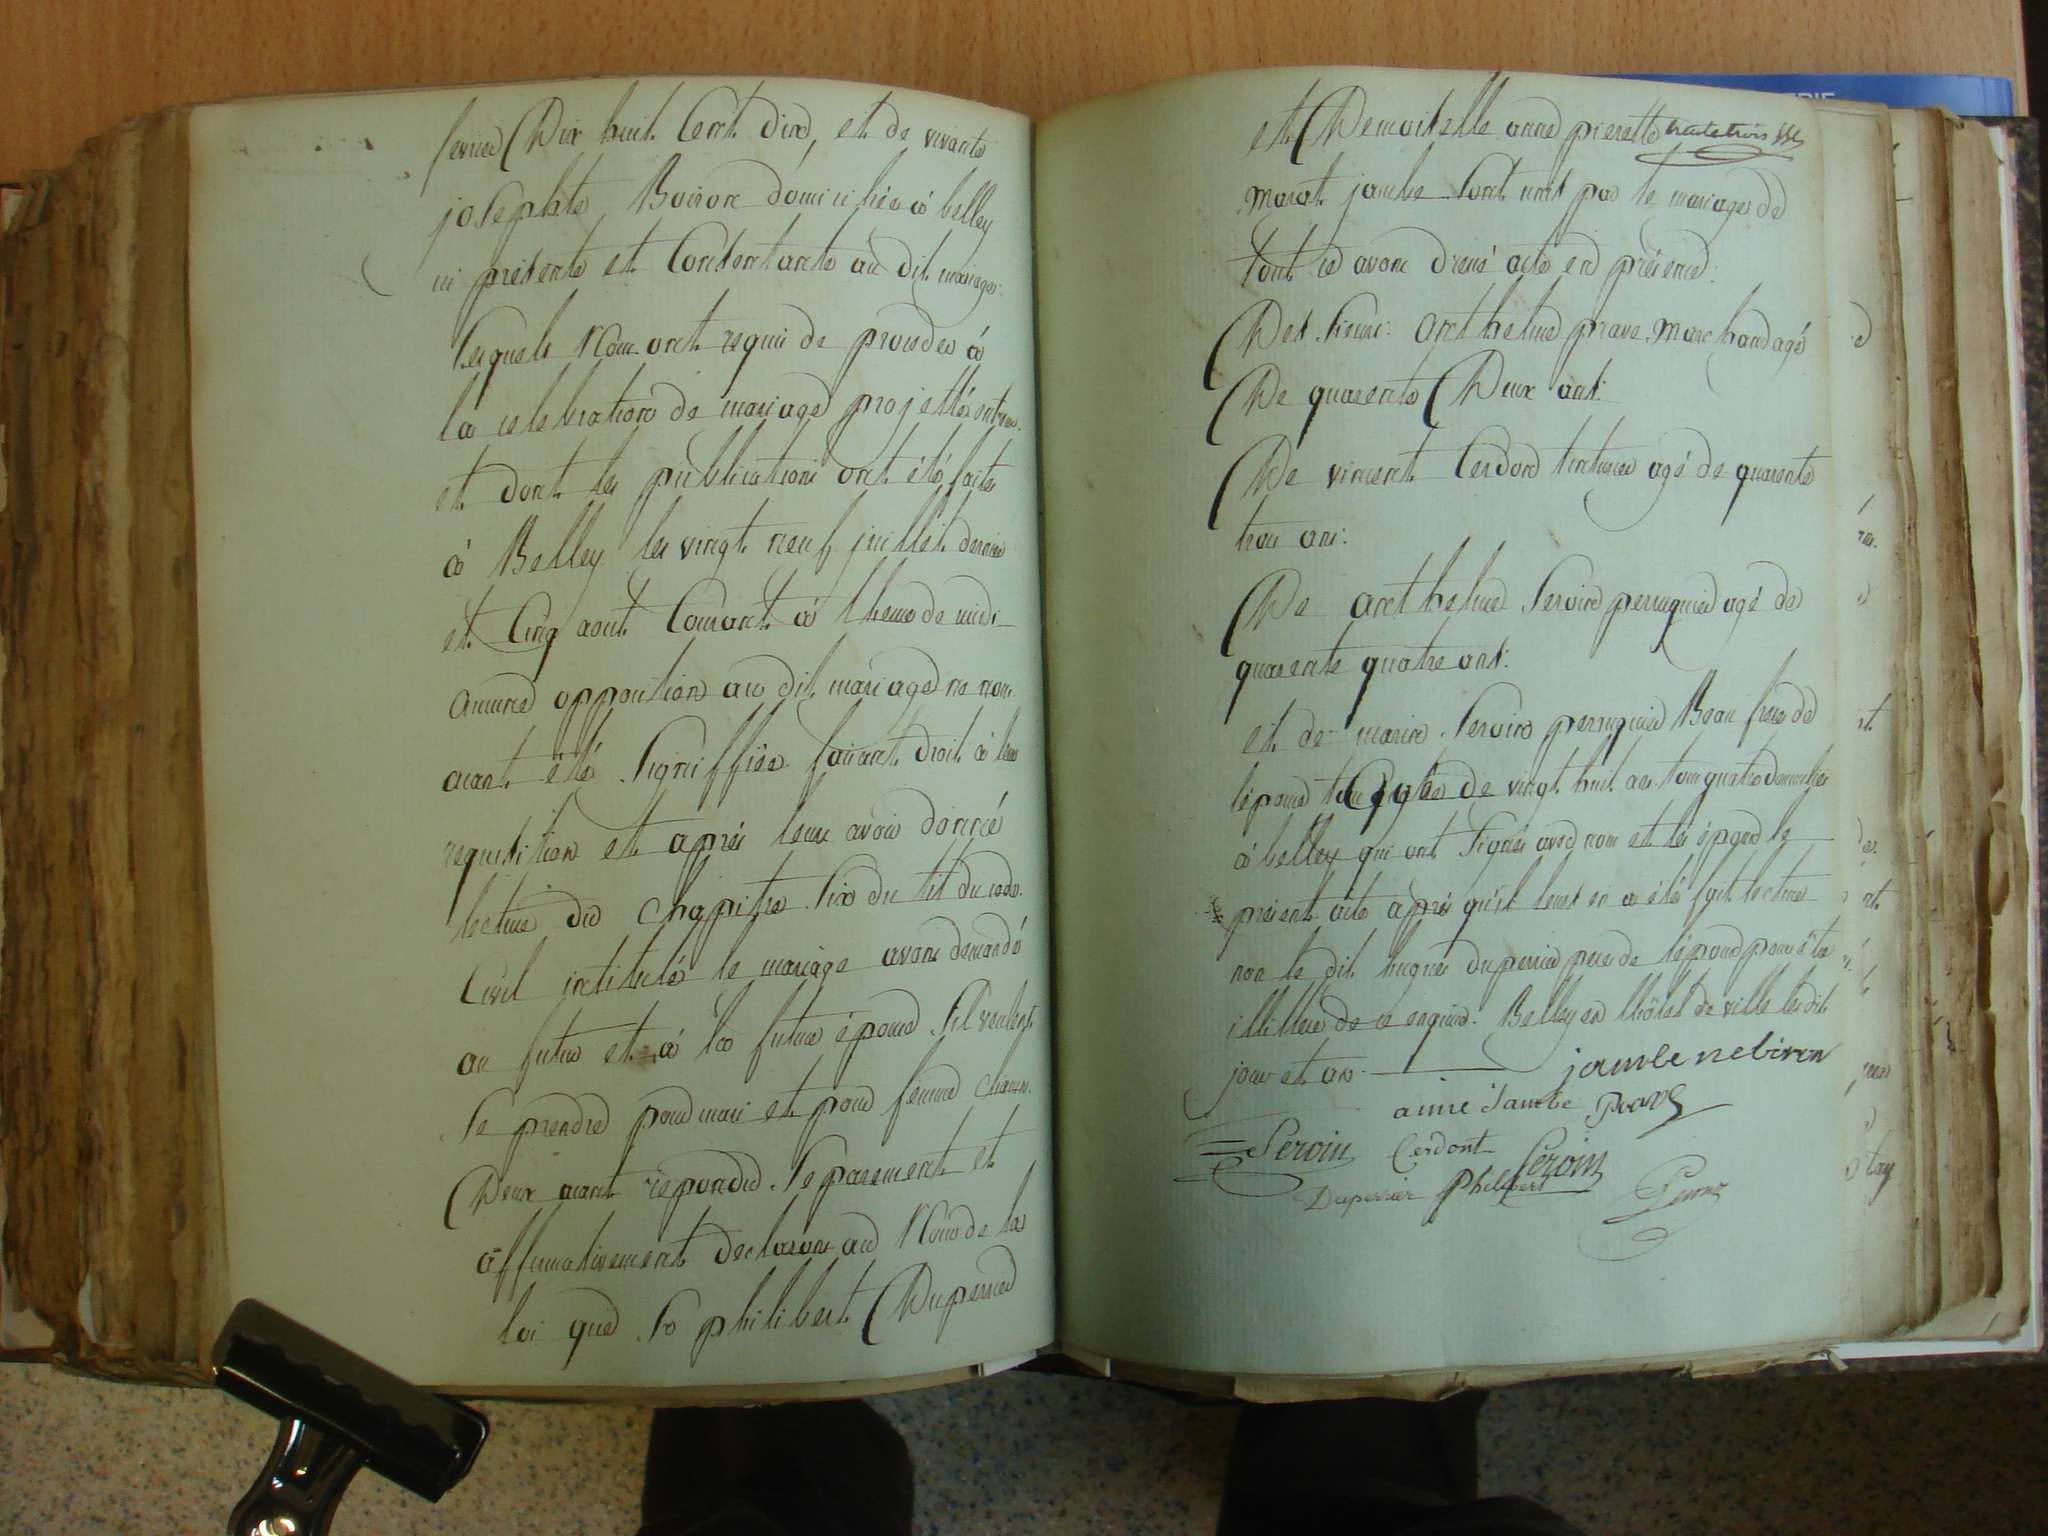 fevrier Dix huit Cent dix, et de vivante
josephte Boivon domiciliée à belley
ici présente et Consentante au dit mariage.
lesquels Nous ont requis de proceder à
la celebration de mariage projetté entr'eux
et dont les publications ont été faites
à Belley les vingt neuf juillet dernier
et Cinq aout Courant à l'heure de midi
aucune opposition au dit mariage ne nous
aiant été Signiffiée faisant droit à leur
requisition et après leur avoir donné
lecture du Chapitre Six du tit du code
Civil intitulé le mariage avons demandé
au futur et à la future épouse S'il veulent
Se prendre pour mari et pour femme chacun
Deux aiant répondu Séparement et
affirmativement declarons au Nom de la
loi que Sr philibert Duperrier
et Demoiselle anne pierrette
trente trois
Marat jambe Sont unis par le mariage de
tout ce avons dressé acte en présence.
Des Sieurs anthelme prave Marchand agé
De quarente Deux ans.
De vincent Cerdon teinturier agé de quarente
trois ans.
De anthelme Seroin perruquier agé de
quarente quatre ans.
et de marin Seroin perruquier Beau frere de
l'épouse agé de vingt huit ans tous quatre domiciliés
à belley qui ont Signés avec nous et les épous le
présent acte après qu'il leur en a été fait lecture
non le dit hugues duperrier pere de l'épous pour être
illiteré de ce enquis. Belley en l'hôtel de ville les dit
jour et an.
jambe ne biron
aimé Jambe Prave
Seroin Cerdont Seroin
Duperrier Philibert